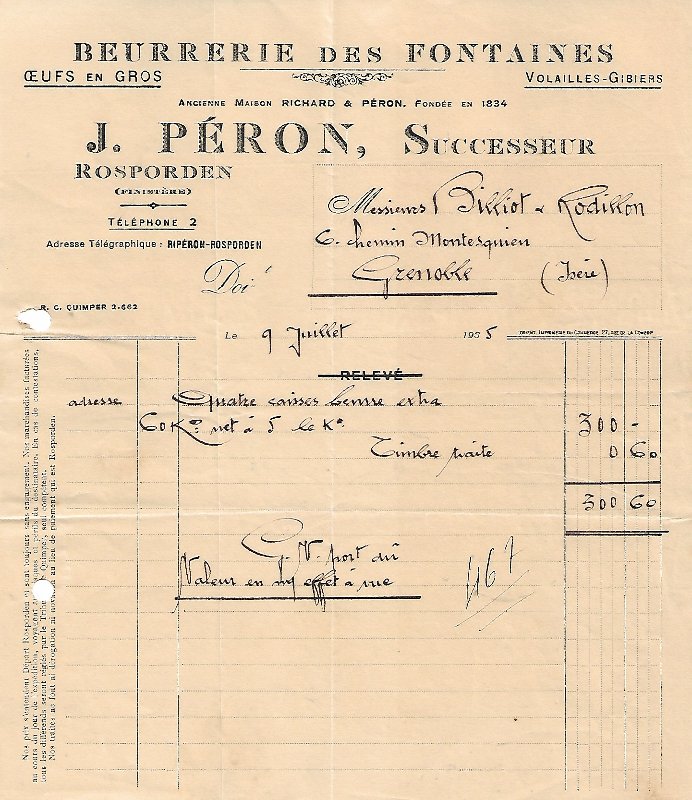 BEURRERIE DES FONTAINES
ŒUFS EN GROS
VOLAILLES-GIBIERS
ANCIENNE MAISON RICHARD & PÉRON, FONDÉE EN 1834
J. PÉRON, SUCCESSEUR
ROSPORDEN
(FINISTÈRE)
TÉLÉPHONE 2
Adresse Télégraphique : RIPÉRON-ROSPORDEN
Messieurs Billiot & Rodillon
6. chemin Montesquieu
Grenoble (Isère)
Doi
R. C. QUIMPER 2-662
Le 9 Juillet 1935
RELEVÉ
adresse Quatre caisses beurre extra
60 K°s net à 5 le K° 300 -
Timbre traite 0 60
300 60
G. V. port dû
Valeur en m/ effet à vue
467
Nos prix s'entendent Départ Rosporden et sont toujours sans engagement. Nos marchandises facturées
au cours du jour de l'expédition, voyagent aux risques et périls du destinataire. En cas de contestations,
tous les différends seront réglés par le Tribunal de Quimper, seul compétent.
Nos traites ne font ni dérogation ni novation au lieu de paiement qui est Rosporden.